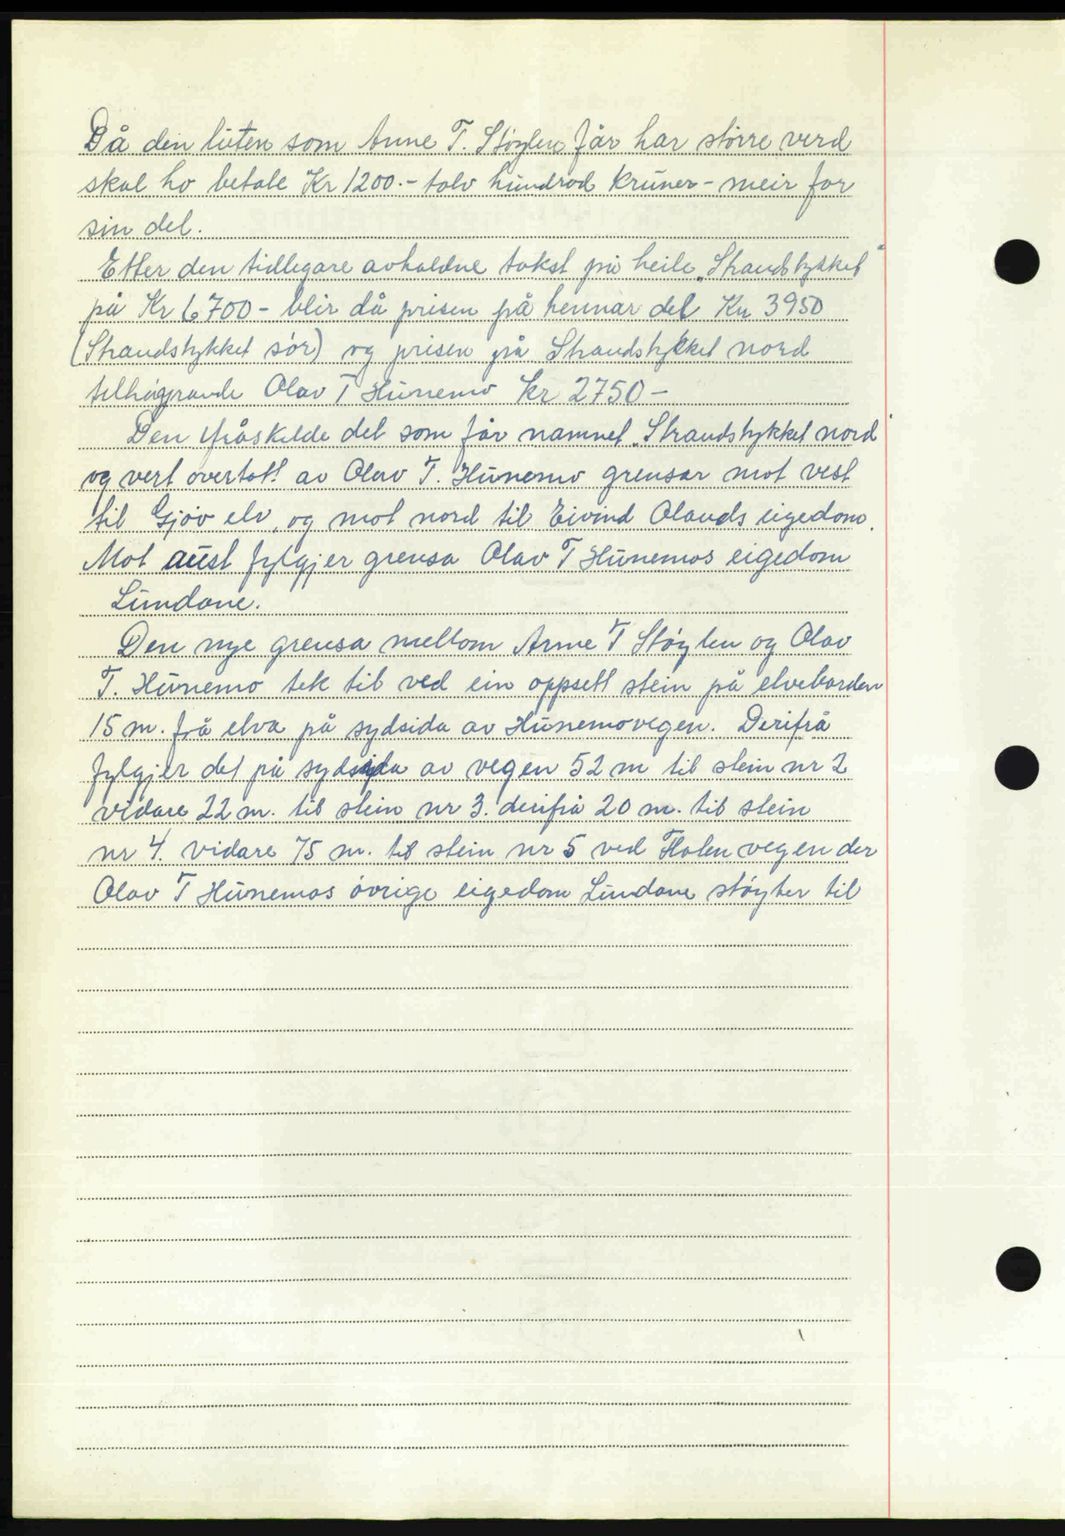 Då den luten som Anne T. Støylen får har større verd
skal ho betale Kr 1200.- tolv hundrad kruner - meir for
sin del.
Etter den tidlegare avhaldne takst på heile „Strandstykket"
på Kr 6700 - blir då prisen på hennar del Kr 3950
(Strandstykket sør) og prisen på Strandstykket nord
tilhøyrande Olav T Hunemo Kr 2750 -
Den fråskilde del som får namnet „Strandstykket nord"
og vert overtatt av Olav T. Hunemo grensar mot vest
til Gjøv elv, og mot nord til Eivind Ølands eigedom.
Mot aust fylgjer grensa Olav T Hunemos eigedom
Lundane.
Den nye grensa mellom Anne T Støylen og Olav
T. Hunemo tek til ved ein oppsett stein på elvebarden
15 m. frå elva på sydsida av Hunemovegen. Derifrå
fylgjer det på sydsida av vegen 52 m til stein nr 2
vidare 22 m. til stein nr 3. derifrå 20 m. til stein
nr 4. vidare 75 m. til stein nr 5 ved Flatenvegen der
Olav T Hunemos øvrige eigedom Lundane støyter til